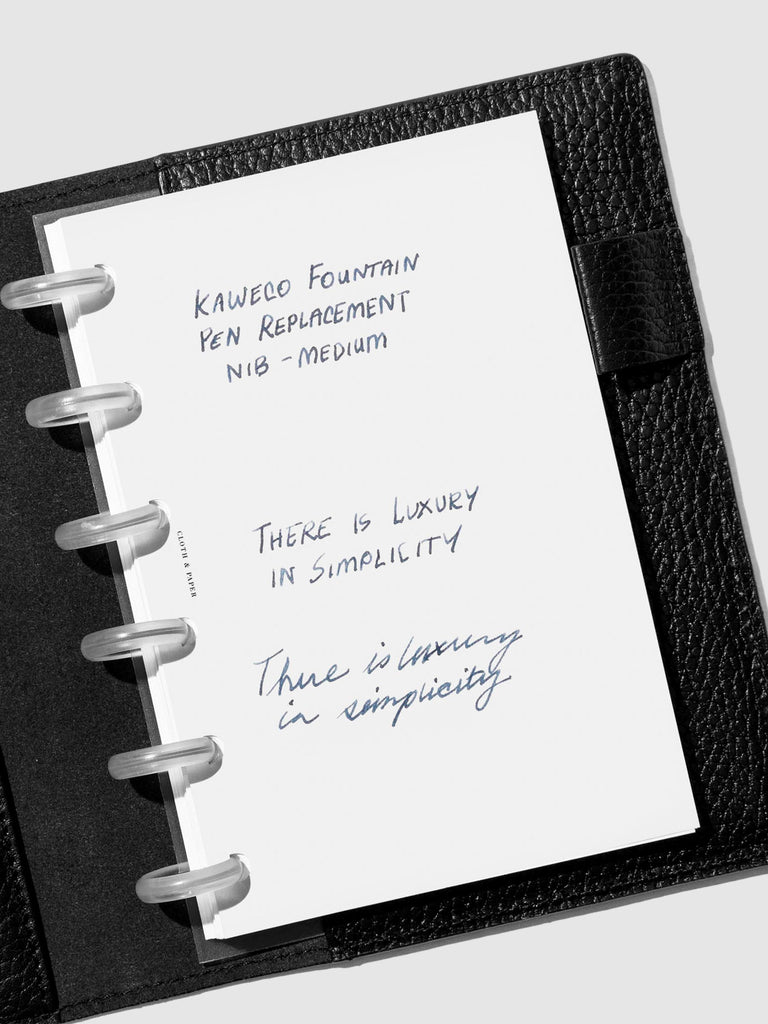 KAWECO FOUNTAIN
PEN REPLACEMENT
NIB - MEDIUM
THERE IS LUXURY
IN SIMPLICITY
CLOTH & PAPER
There is luxury
in simplicity